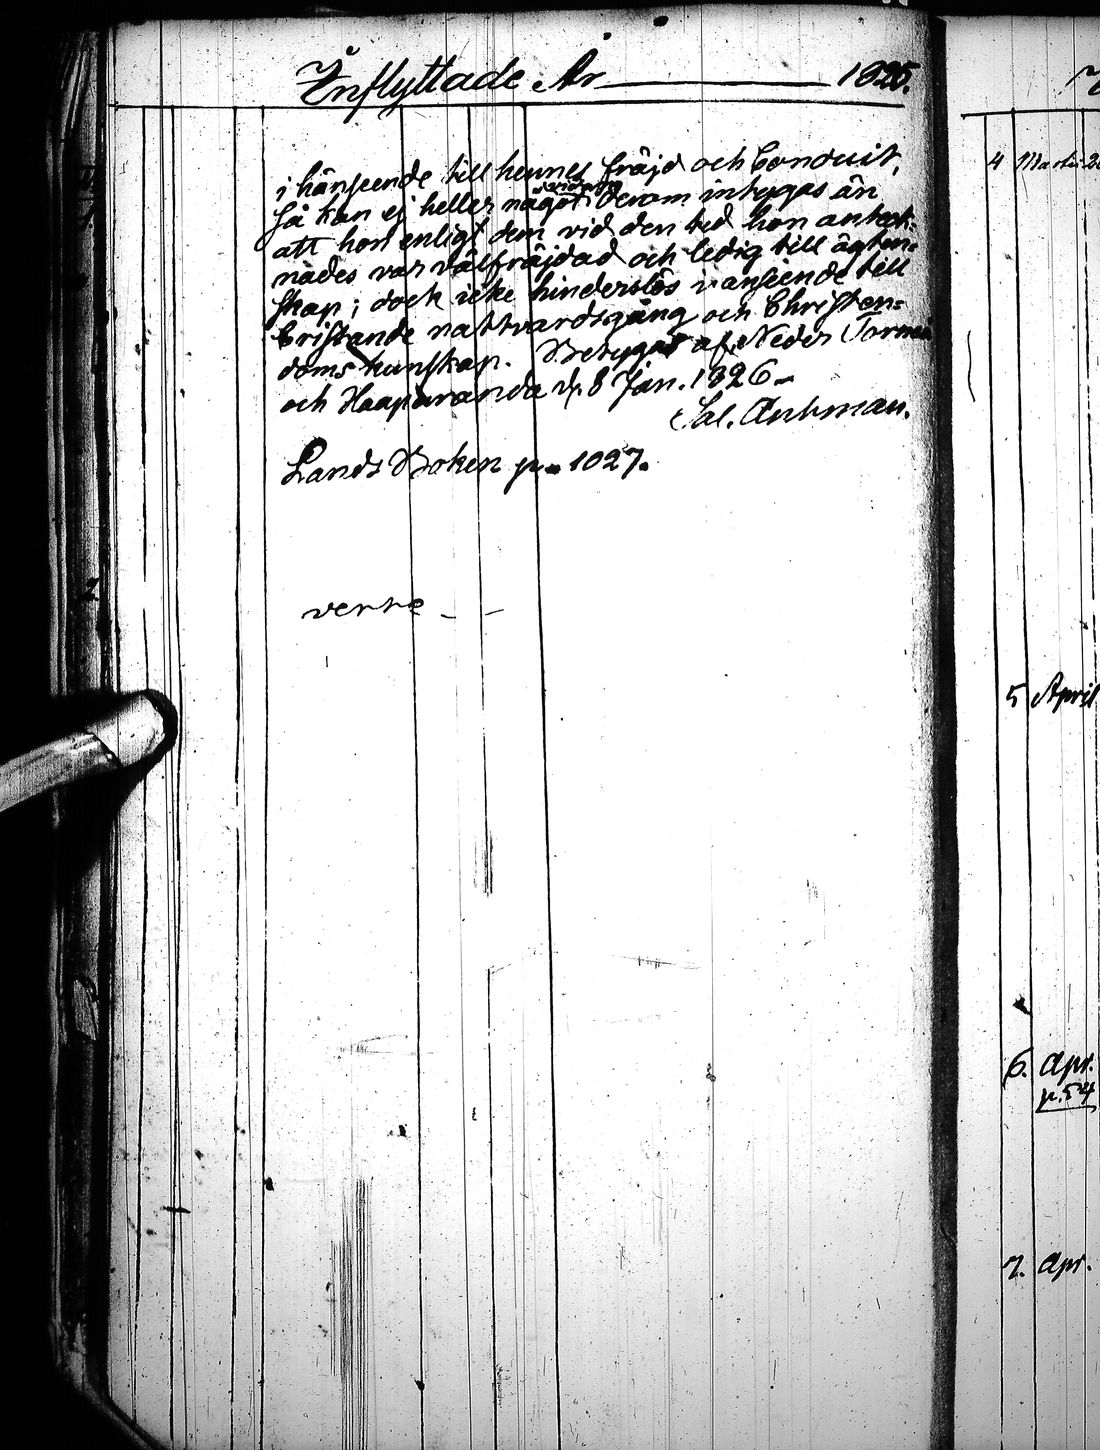 Inflyttade År 1825.
i hänseende till hennes fräjd och Conduit,
så kan ej heller något derom intygas än
att hon enligt dem vid den tid hon anteck=
nades var välfräjdad och ledig till ägten=
skap; dock icke hinderslös i anseende till
bristande nattvardsgång och Christen=
doms kunskap. Betygat af Neder Torneå
och Haaparanda d. 8 Jan. 1826
Sal. Antman.
Lands Boken p. 1027.
4 Martii
5 April
6. Apr.
p. 54
7. Apr.